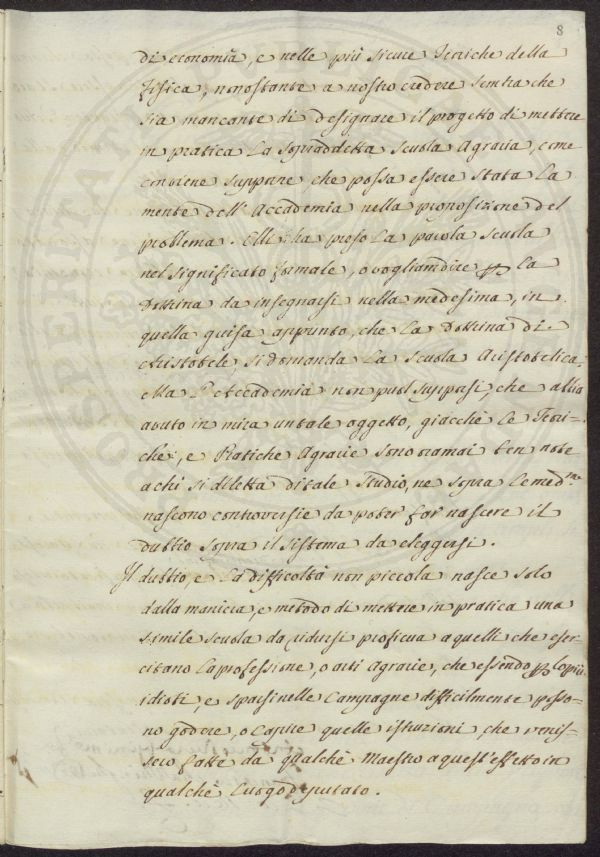 8
di economia, e nelle più sicure Teriche della
Fisica, nonostante a nostro credere sembra che
sia mancante di designare il progetto di mettere
in pratica la sopraddetta Scuola Agraria, come
conviene supporre, che possa essere stata la
mente dell'Accademia nella proposizione del
problema. Elli ha preso la parola Scuola
nel significato formale, o vogliam dire p la
Dottrina da insegnarsi nella medesima, in
quella guisa appunto, che la Dottrina di
Aristotele si domanda la Scuola Aristotelica.
Ma l'Accademia non puol supporsi, che abbia
avuto in mira un tale oggetto, giacchè le Teori-
che, e Pratiche Agrarie sono oramai ben note
a chi si diletta di tale Studio, ne sopra le med.me
nascono controversie da poter far nascere il
dubbio sopra il sistema da eleggersi.
Il dubbio, e la difficoltà non piccola nasce solo
dalla maniera, e metodo di mettere in pratica una
simile scuola da ridursi proficua a quelli che eser-
citano la professione, o arti Agrarie, che essendo p lo più
idioti e sparsi nelle Campagne difficilmente posso-
no godere, o capire quelle istruzioni, che venis-
sero fatte da qualche Maestro a quest'effetto in
qualche Luogo deputato.